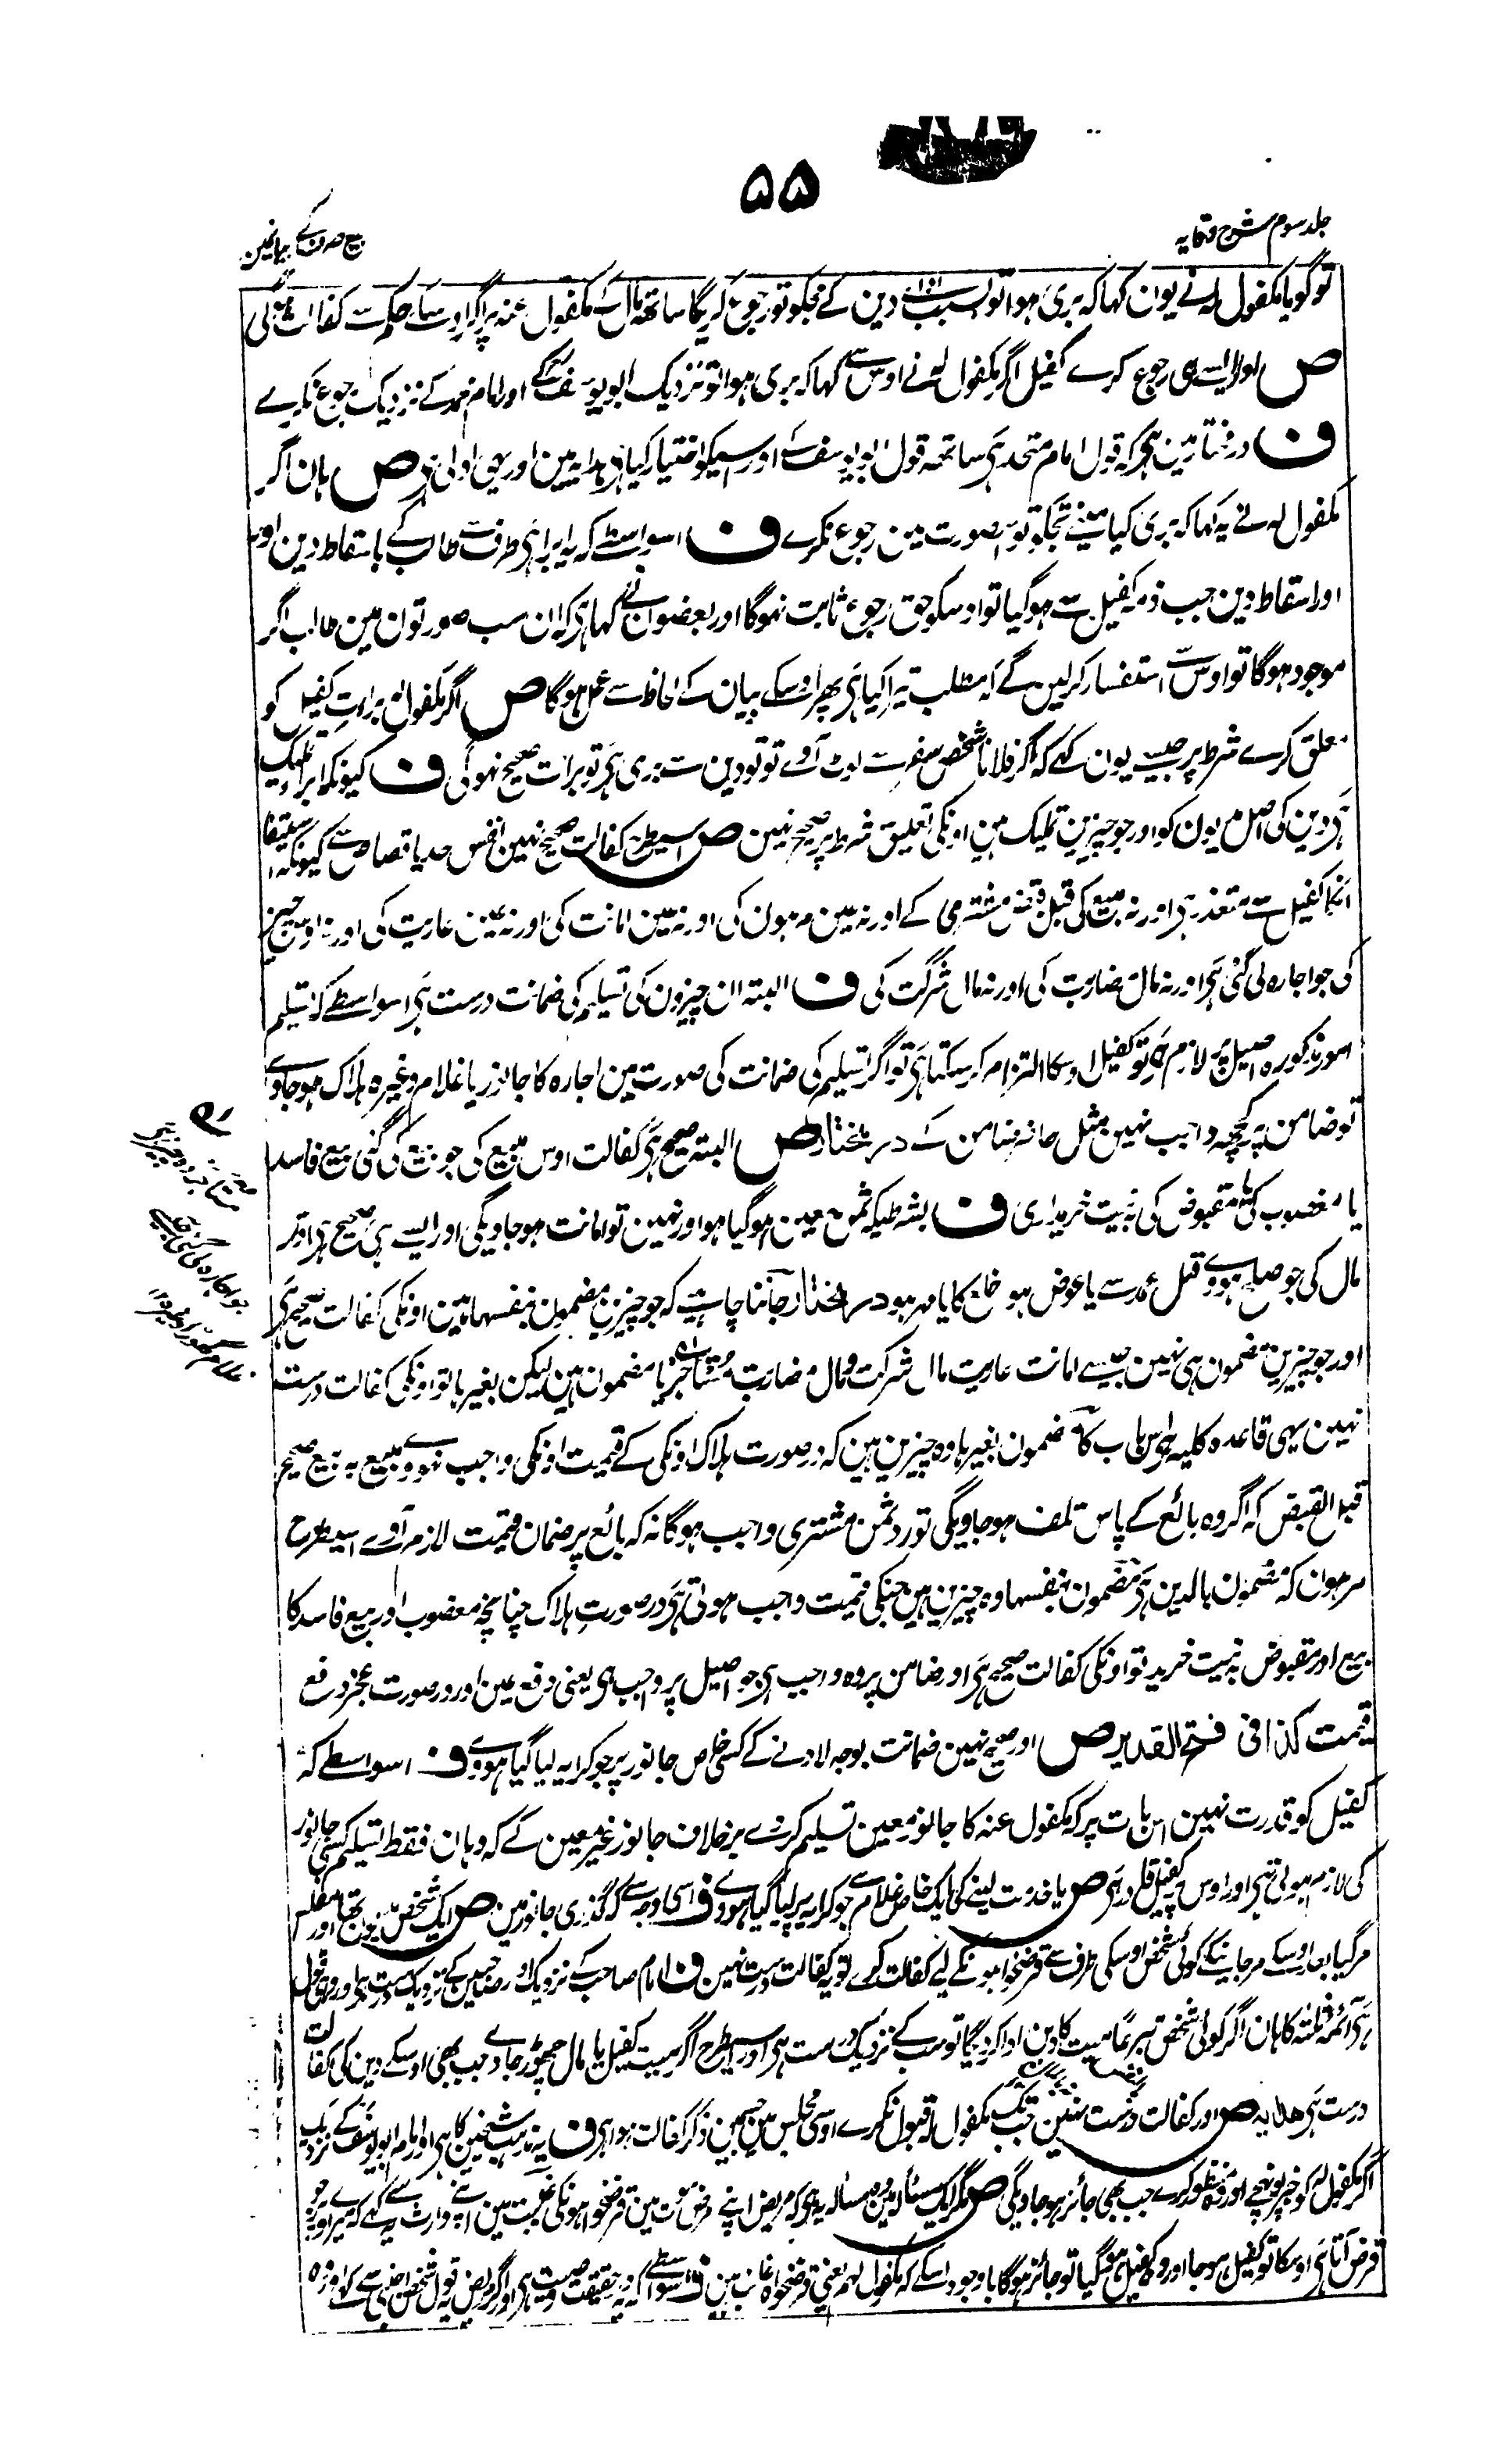 ۵۵
جلد سوم شرح وقایہ
بیع صرف کے بیانمین
تو گویا مکفول لہ نے یون کہا کہ بری ہوا تو بسبب ادائے دین کے مجکو تو رجوع کریگا ساتھ مال کے مکفول عنہ پر اگر اوسکے حکم سے کفالت کی
ص اور ایسے ہی رجوع کرے کفیل اگر مکفول لہ نے اوس سے کہا کہ بری ہوا تو نزدیک ابو یوسف کے اور امام محمد کے نزدیک رجوع نکرے
ف در مختار مین ہی کہ قول امام متحد ہی ساتھ قول ابو یوسف کے اور اسیکو اختیار کیا ہی ہدایہ مین اور یہی اولی ہی ص ہان اگر
مکفول لہ نے یہ کہا کہ بری کیا مینے تجکو تو اس صورت مین رجوع نکرے ف اسواسطے کہ یہ ابرا ہی طرف سے طالب کے باسقاط دین اوسے
اور اسقاط دین جب ذمہ کفیل سے ہو گیا تو اوسکو حق رجوع ثابت نہوگا اور بعضون نے کہا ہی کہ ان سب صورتون مین طالب اگر
موجود ہوگا تو اوس سے استفسار کرلین گے کہ مطلب تیرا کیا ہی پھر اوسکے بیان کے لحاظ سے عمل ہوگا ص اگر مکفول لہ براءت کفیل کو
معلق کرے شرط پر جیسے یون کہے کہ اگر فلانا شخص سفر سے لوٹ آوے تو تو دین سے بری ہی تو برات صحیح نہوگی ف کیونکہ ابرا تملیک
ہی دین کی اصل مدیون کو اور جو چیزین تملیک ہین اونکی تعلیق شرط پر صحیح نہین ص اسیطرح کفالت صحیح نہین نفس حد یا قصاص سے کیونکہ استیفا
انکا کفیل سے متعذر ہی اور نہ مبیع کی قبل قبضہ مشتری کے اور نہ عین مرہون کی اور نہ عین امانت کی اور نہ عین عاریت کی اور نہ اوس چیز
کی جو اجارہ لی گئی ہی اور نہ مال مضاربت کی اور نہ مال شرکت کی ف البتہ ان چیزون کی تسلیم کی ضمانت درست ہی اسواسطے کہ تسلیم
امور مذکورہ اصیل پر لازم ہی تو کفیل اوسکا التزام کر سکتا ہی تو اگر تسلیم کی ضمانت کی صورت مین اجارہ کا جانور یا غلام وغیرہ ہلاک ہو جاوے
تو ضامن پر کچھ واجب نہین مثل حاضر ضامن کے در مختار ص البتہ صحیح ہی کفالت اوس مبیع کی جو بیع کی گئی بیع فاسد
یا مغصوب کی یا مقبوض کی بہ نیت خریداری ف بشرطیکہ ثمن معین ہو گیا ہو اور نہین تو امانت ہو جاویگی اور ایسے ہی صحیح ہی اوس
مال کی جو صلح ہووے قتل عمد سے یا عوض ہو خلع کا یا مہر ہو در مختار جاننا چاہیے کہ جو چیزین مضمون بنفسہا ہین اونکی کفالت صحیح ہی
اور جو چیزین مضمون ہی نہین جیسے امانت عاریت مال شرکت و مال مضاربت و مستاجر یا مضمون ہین لیکن بغیرہا تو اونکی کفالت درست
نہین یہی قاعدہ کلیہ ہی اس باب کا مضمون بغیرہا وہ چیزین ہین کہ در صورت ہلاک اونکی کے قیمت اونکی واجب نہووے مبیع بہ بیع صحیح
قبل القبض کہ اگر وہ بائع کے پاس تلف ہو جاویگی تو رد ثمن مشتری واجب ہوگا نہ کہ بائع پر ضمان قیمت لازم آوے اسیطرح
مرہون کہ مضمون بالدین ہی مضمون بنفسہا وہ چیزین ہین جنکی قیمت واجب ہوتی ہی در صورت ہلاک چنانچہ مغصوب اور بیع فاسد کا
مبیع اور مقبوض بہ نیت خرید تو اونکی کفالت صحیح ہی اور ضامن پر وہ واجب ہی جو اصیل پر واجب ہی یعنی دفع عین اور در صورت عجز دفع
قیمت کذا فی فتح القدیر ص اور صحیح نہین ضمانت بوجھ لادنے کے کسی خاص جانور پر جو کرایہ لیا گیا ہووے ف اسواسطے کہ
کفیل کو قدرت نہین اس بات پر کہ مکفول عنہ کا جانور معین تسلیم کرے بر خلاف جانور غیر معین کے کہ وہان فقط تسلیم کسی جانور
کی لازم ہوتی ہی اور اوس پر کفیل قادر ہی ص یا خدمت لینے کی ایک خاص غلام سے جو کرایہ پر لیا گیا ہووے ف اسی وجہ سے کہ گذری جانور مین ص ایک شخص مدیون تھا اور مفلس
مر گیا بعد اوسکے مر جانیکے کوئی شخص اوسکی طرف سے قرضخواہونکے لیے کفالت کرے تو یہ کفالت درست نہین ف امام صاحب کے نزدیک اور صاحبین کے نزدیک درست ہی اور یہی قول
ہی ائمہ ثلثہ کا ہان اگر کوئی شخص تبرعا میت کا دین ادا کردیگا تو سب کے نزدیک درست ہی اور اسیطرح اگر میت کفیل یا مال چھوڑ جاوے جب بھی اوسکے دین کی کفالت
درست ہی ھدایہ ص اور کفالت درست نہین جب تک مکفول لہ قبول نکرے اوسی مجلس مین جسمین ذکر کفالت ہوا ہی ف یہ مذہب شیخین کا ہی اور امام ابو یوسف کے نزدیک
اگر مکفول لہ کو خبر پونہچے اور وہ منظور کرے جب بھی جائز ہو جاویگی ص مگر ایک مسئلہ مین وہ مسئلہ یہ ہی کہ مریض اپنے مرض موت مین قرضخواہونکی غیبت مین اپنے وارث سے کہے کہ میرے اوپر جو
قرض آتا ہی اوسکا تو کفیل ہو جا اور وہ کفیل ہو گیا تو جائز ہوگا باوجود اسکے کہ مکفول لہم یعنی قرضخواہ غائب ہین ف اسواسطے کہ یہ در حقیقت وصیت ہی اور اگر مریض یہ قول شخص اجنبی سے کہے اور وہ